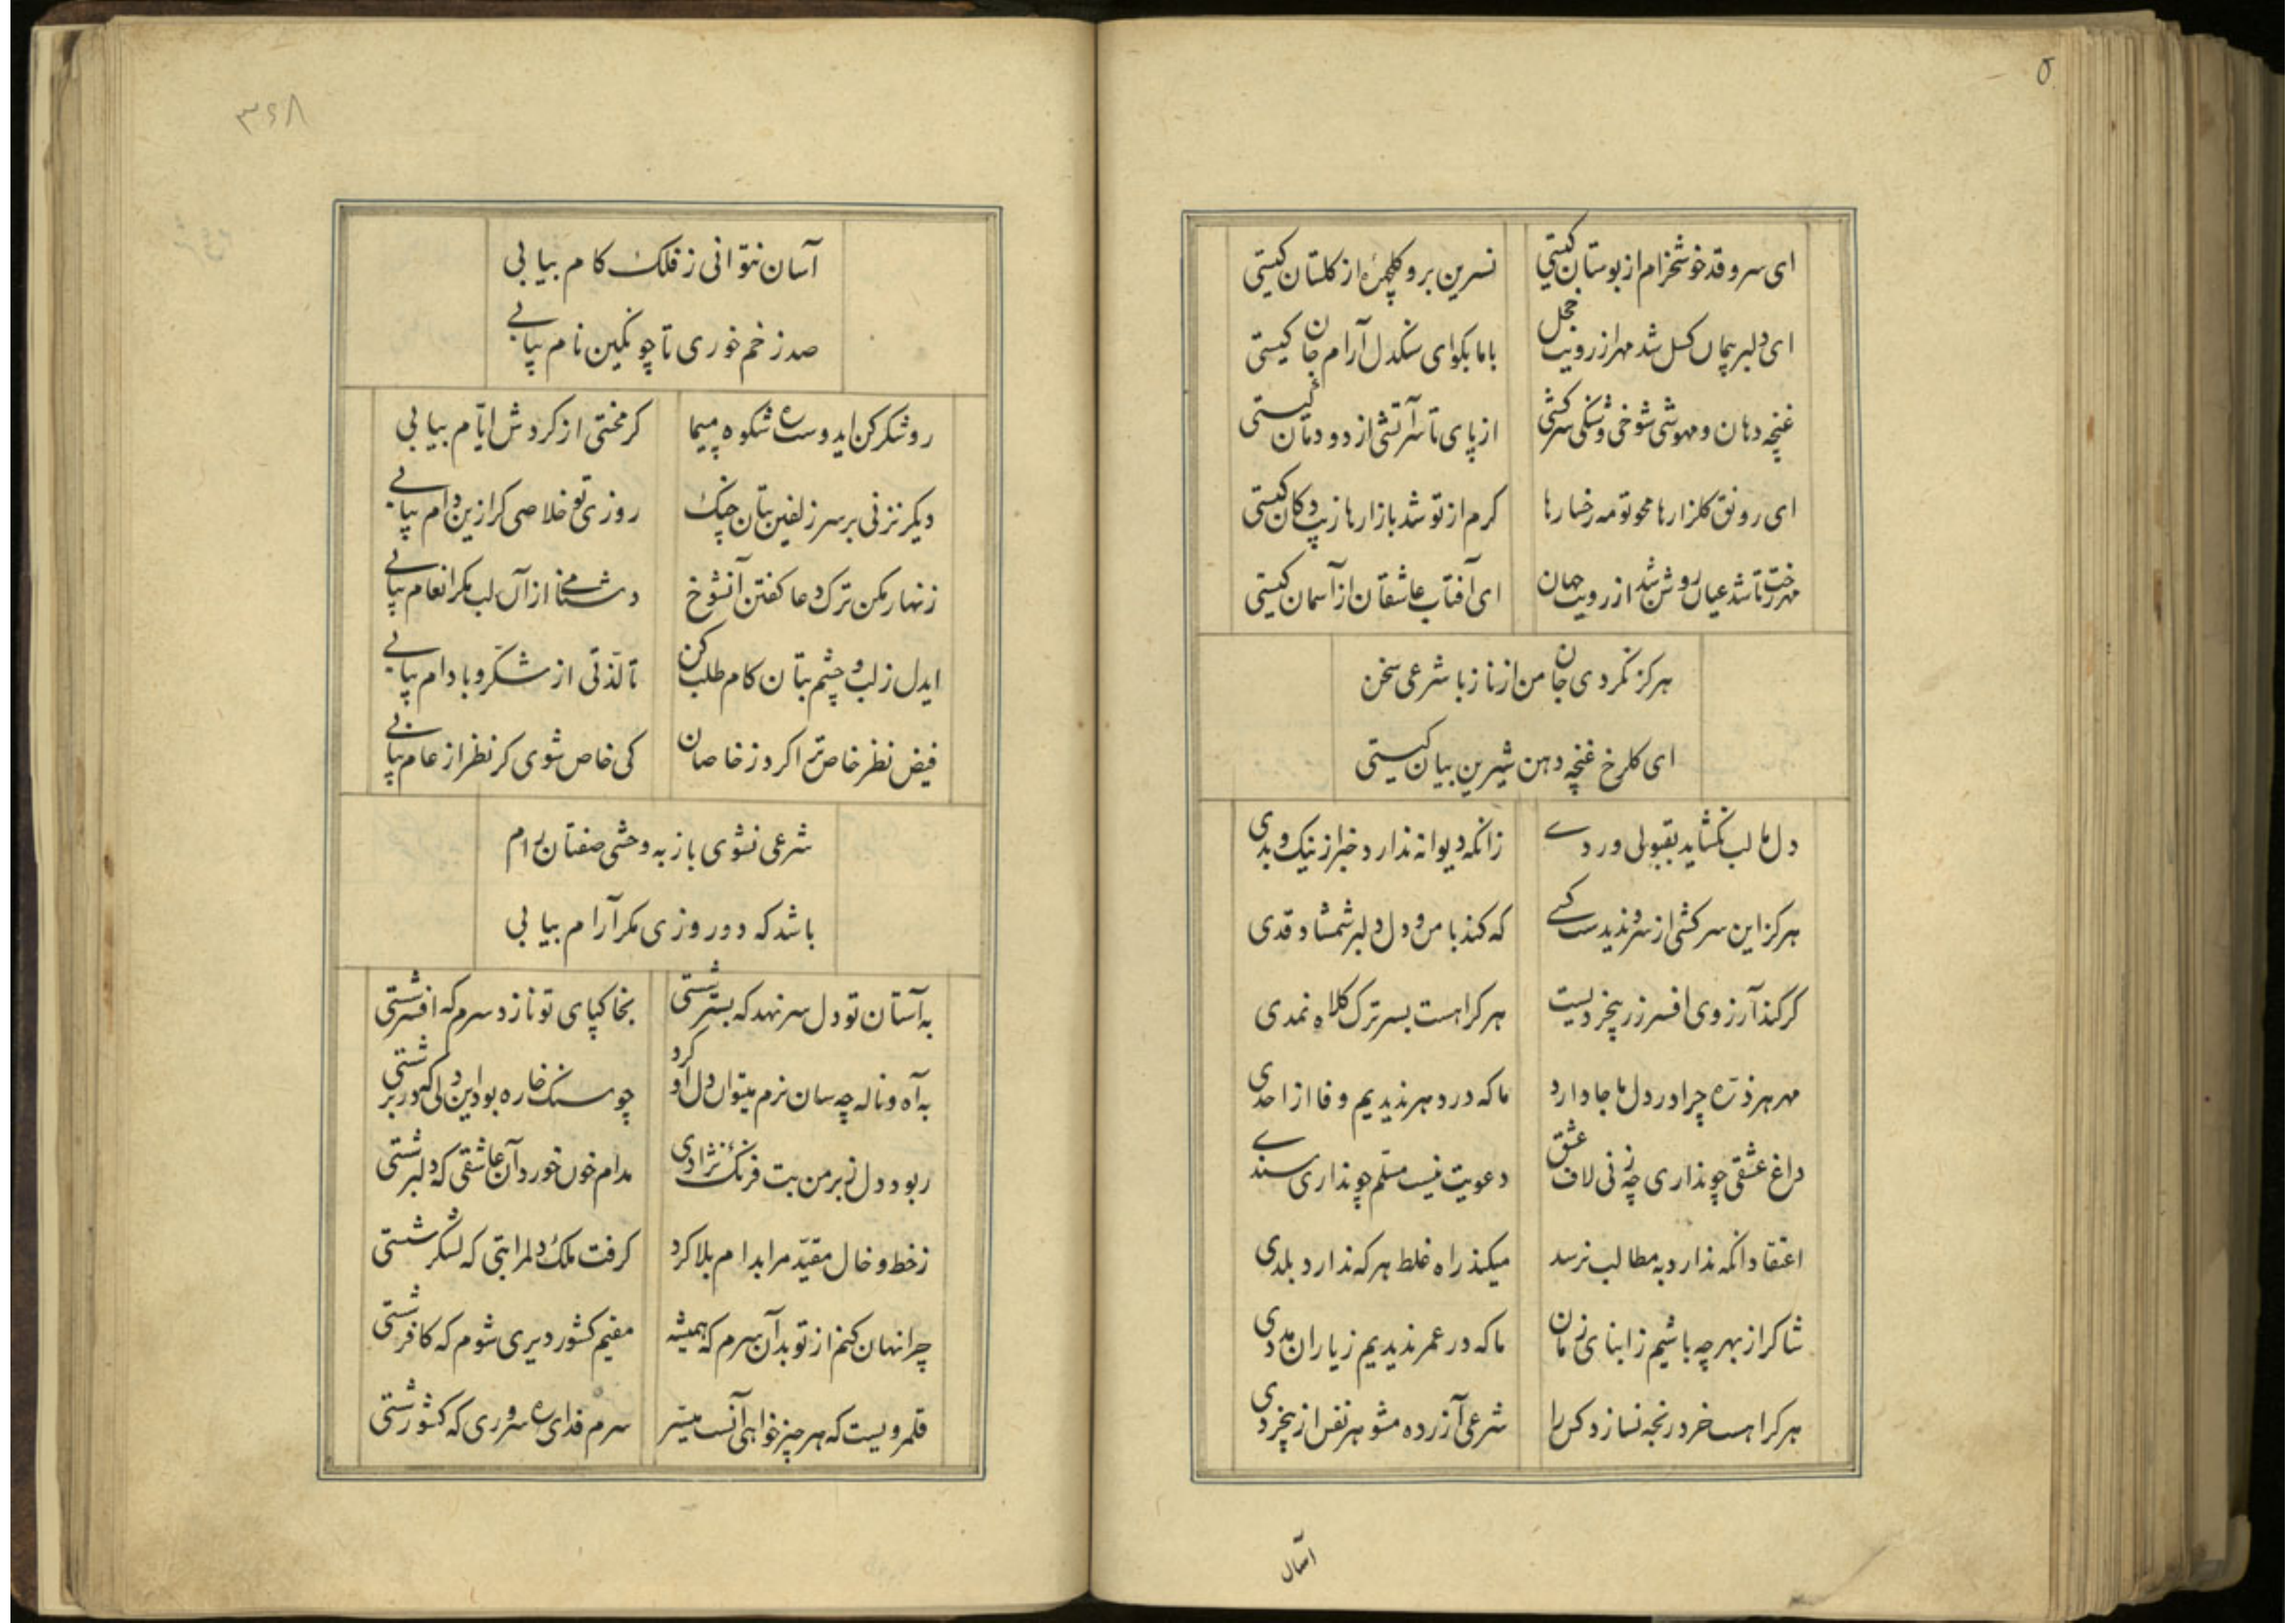 ای سرو قد خوشخرام از بوستان کیستی نسرین بر و کلچهرهٔ از کلستان کیستی
ای دلبر پیمان کسل شد مهر از رویت خجل با ما بکو ای سنکدل آرام جان کیستی
غنچه دهان و مهوشی شوخی و شنکی سرکشی از پای تا سر آتشی از دودمان کیستی
ای رونق کلزارها محو تو مه رخسارها کرم از تو شد بازارها زیب دکان کیستی
مهر رخت تا شد عیان روشن شد از رویت جهان ای آفتاب عاشقان از آسمان کیستی
هرکز نکردی جان من از ناز با شرعی سخن
ای کلرخ غنچه دهن شیرین بیان کیستی
دل ما لب نکشاید بقبولی و ردے زانکه دیوانه ندارد خبر از نیک و بدی
هرکز این سرکشی از سرو ندیدست کسے که کند با من و دل دلبر شمشاد قدی
کر کند آرزوی افسر زر بیخردیست هر کرا هست بسر ترک کلاه نمدی
مهر هر ذره چرا در دل ما جا دارد ما که در دهر ندیدیم وفا از احدی
داغ عشقی چو نداری چه زنی لاف ز عشق دعویت نیست مسلم چو نداری سندے
اعتقاد آنکه ندارد به مطالب نرسد میکند راه غلط هر که ندارد بلدی
شاکر از بهر چه باشیم ز ابنای زمان ما که در عمر ندیدیم ز یاران مددی
هر کرا هست خرد رنجه نسازد کس را شرعی آزرده مشو هر نفس از بیخردی
آسان
۳۶۸
آسان نتوانی ز فلک کام بیابی
صد زخم خوری تا چو نکین نام بیابے
رو شکر کن ایدوست ره شکوه مپیما کر محنتی از کردش ایّام بیابی
دیکر نزنی بر سر زلفین بتان چنک روزی تو خلاصی کر ازین دام بیابے
زنهار مکن ترک دعا کفتن آنشوخ دشنامے از آن لب مکر انعام بیابے
ایدل ز لب و چشم بتان کام طلب کن تا لذّتی از شکّر و بادام بیابے
فیض نظر خاص تر اکرد ز خاصان کی خاص شوی کر نظر از عام بیابے
شرعی نشوی باز به وحشی صفتان رام
باشد که دو روزی مکر آرام بیابی
به آستان تو دل سر نهد که بستر شتی بخاکپای تو نازد سرم که افسر شتی
به آه و ناله چه سان نرم میتوان دل او کرد چو سنک خاره بود این دلی که در بر شتی
ربود دل ز بر من بت فرنک نژادی مدام خون خورد آن عاشقی که دلبر شتی
ز خط و خال مقیّد مرا بدام بلا کرد کرفت ملک دلم را بتی که لشکر شتی
چرا نهان کنم از تو بدآن سرم که همیشه مقیم کشور دیری شوم که کافر شتی
قلمرویست که هر چیز خواهی آنست میسّر سرم فدای ره سروری که کشور شتی